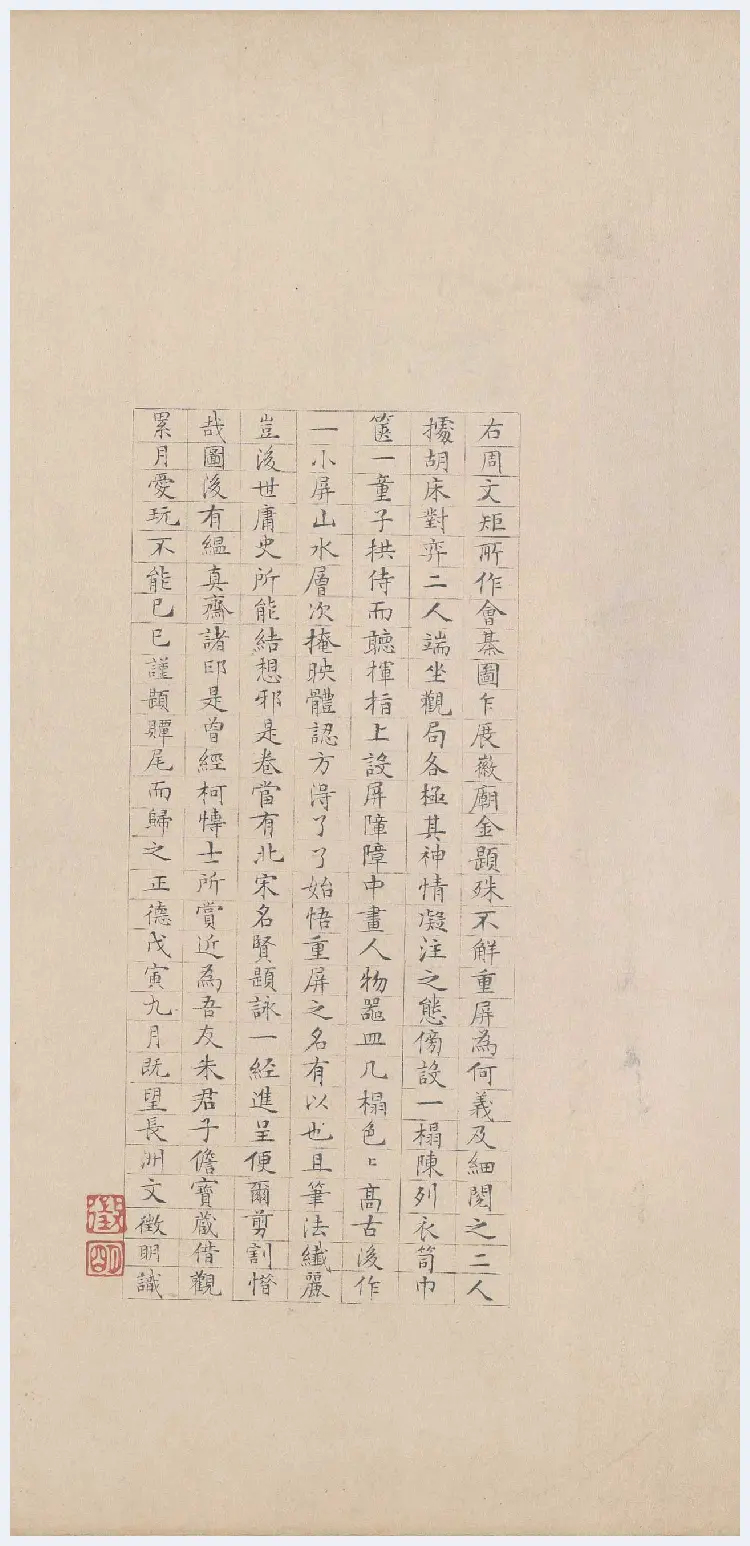 右周文矩所作會棊圖乍展徽廟金題殊不解重屏為何義及細閱之二人
據胡床對弈二人端坐觀局各極其神情凝注之態傍設一榻陳列衣笥巾
篋一童子拱侍而聽揮指上設屏障障中畫人物器皿几榻色〻高古後作
一小屏山水層次掩映體認方得了了始悟重屏之名有以也且筆法纖麗
豈後世庸史所能結想邪是卷當有北宋名賢題詠一經進呈便爾剪割惜
哉圖後有緼真齋諸印是曾經柯博士所賞近為吾友朱君子儋寶藏借觀
累月愛玩不能已已謹題贉尾而歸之正德戊寅九月既望長洲文徵明識
徵
明